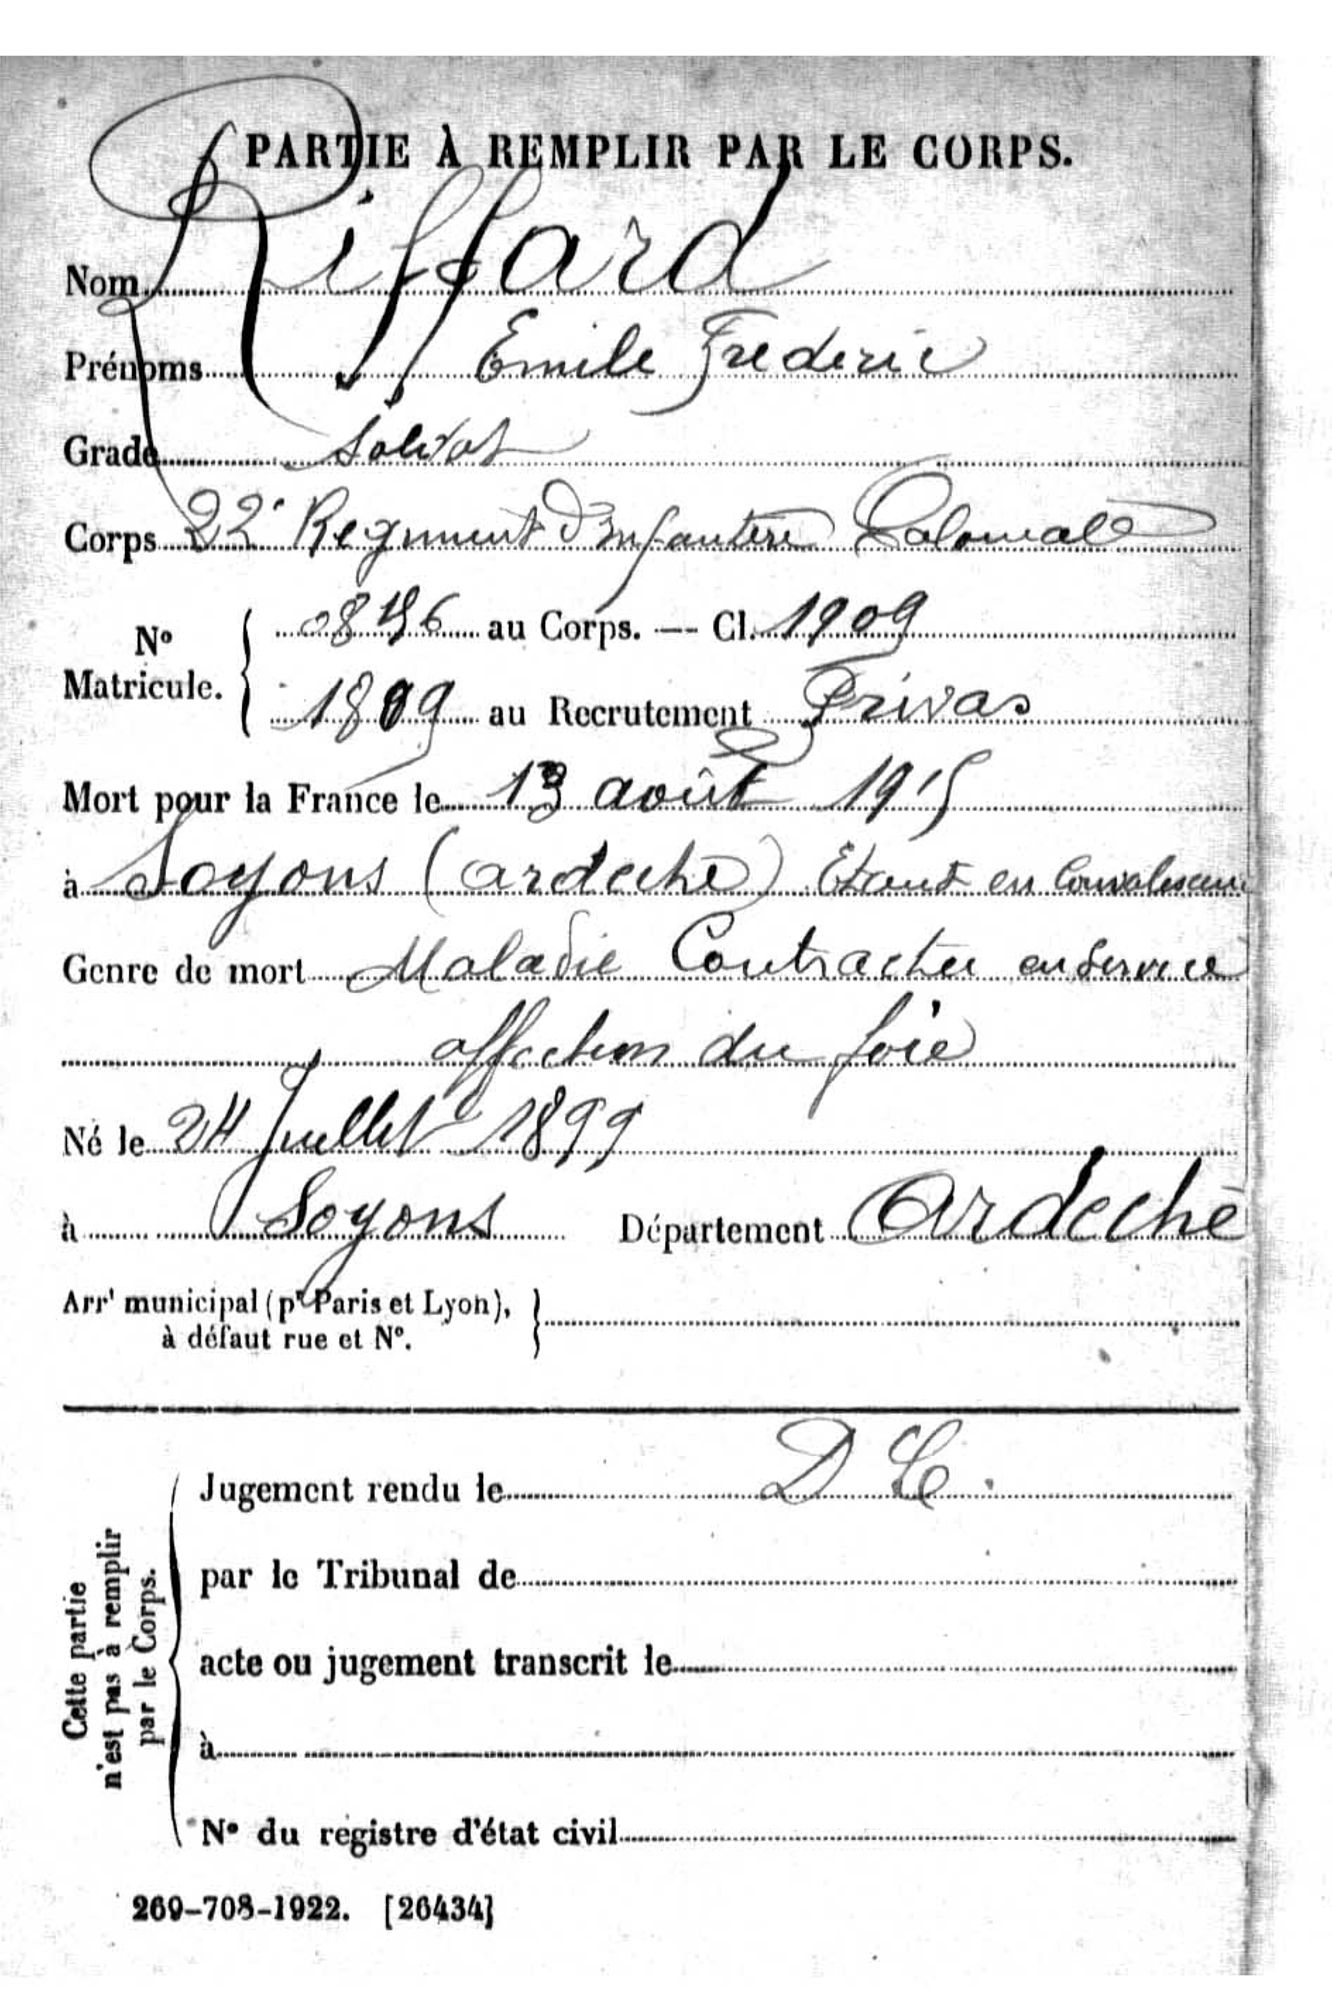 PARTIE À REMPLIR PAR LE CORPS.
Nom Riffard
Prénoms Emile Frederic
Grade Soldat
Corps 22e Regiment d'Infanterie Coloniale
No Matricule. 08496 au Corps. — Cl. 1909
1809 au Recrutement Privas
Mort pour la France le 13 août 1915
à Soyons (Ardeche) Etant en Convalescence
Genre de mort Maladie Contractée en service
affection du foie
Né le 24 Juillet 1899
à Soyons Département Ardeche
Arrt municipal (pr Paris et Lyon),
à défaut rue et No.
Cette partie
n'est pas à remplir
par le Corps.
Jugement rendu le D C.
par le Tribunal de
acte ou jugement transcrit le
à
No du registre d'état civil
269-708-1922. [26434]